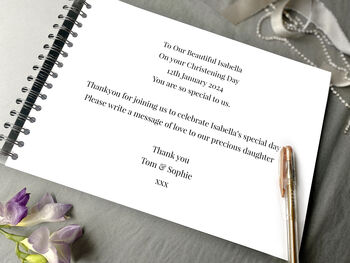 To Our Beautiful Isabella
On your Christening Day
12th January 2024
You are so special to us.
Thankyou for joining us to celebrate Isabella's special day
Please write a message of love to our precious daughter
Thank you
Tom & Sophie
xxx